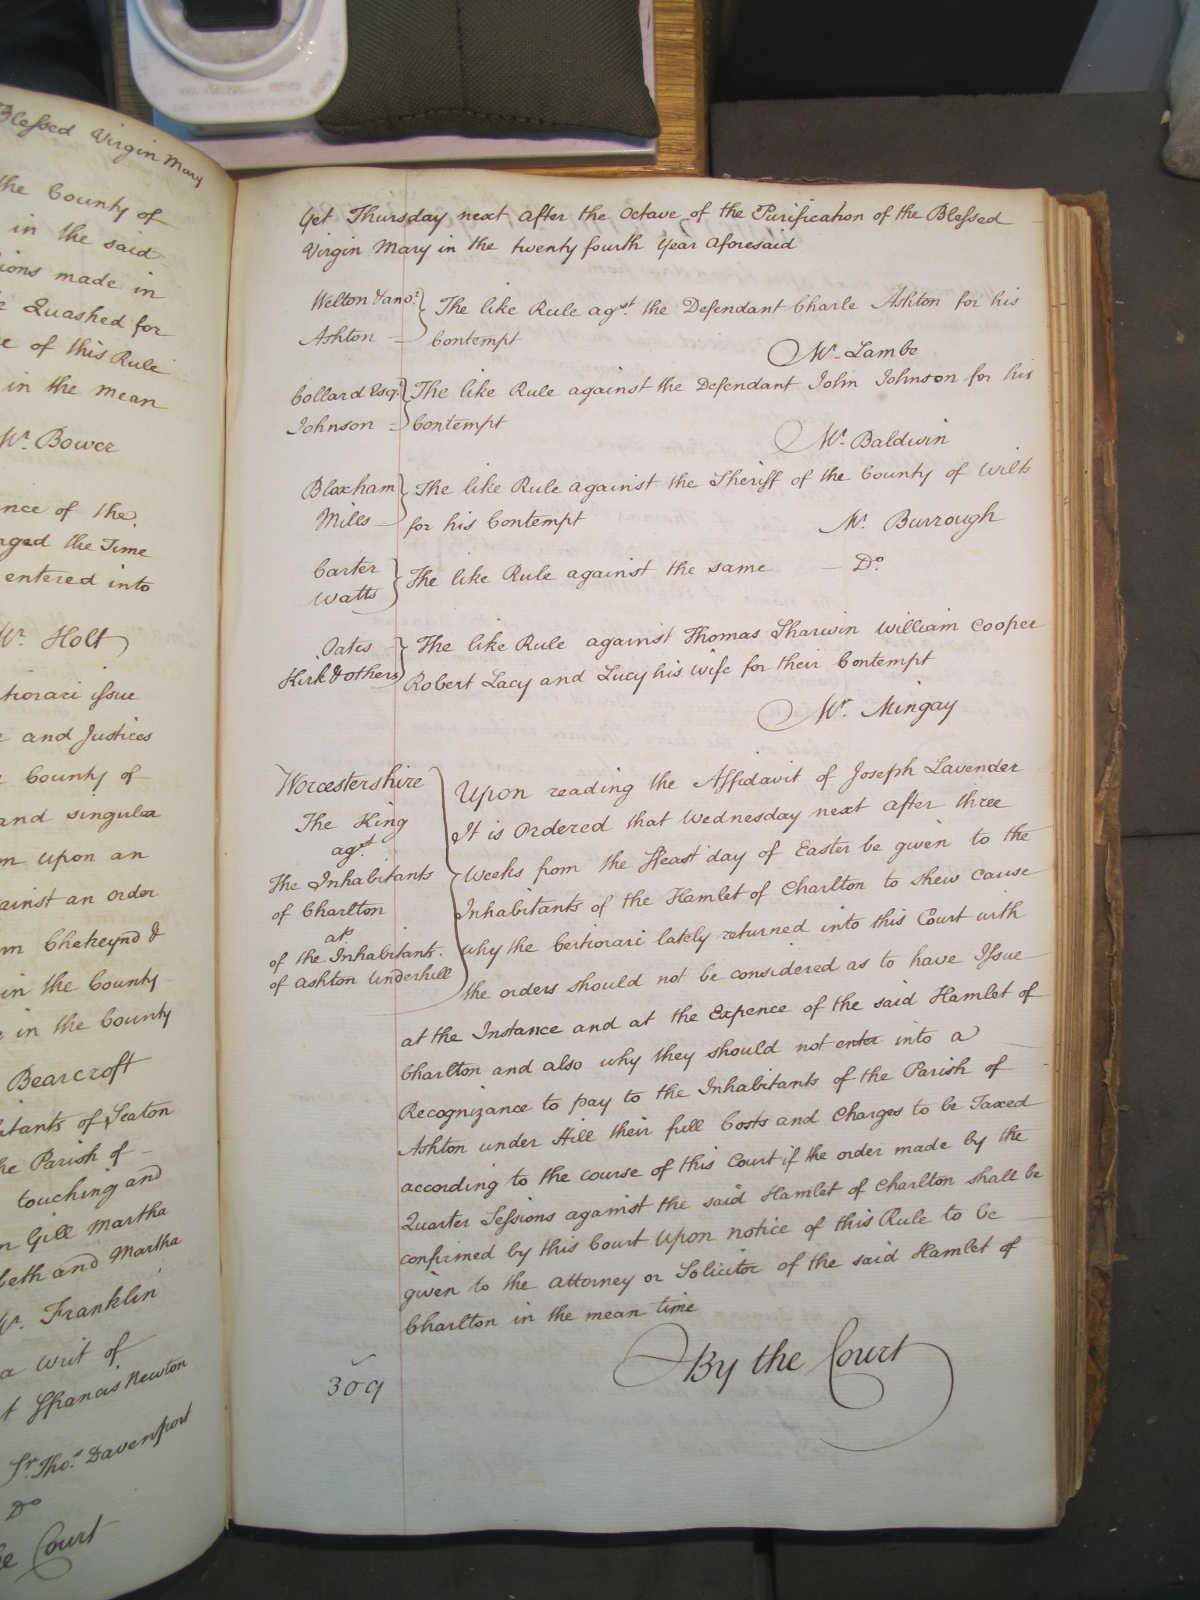 Blessed Virgin Mary
the County of
in the said
ions made in
Quashed for
of this Rule
in the mean
Mr. Bower
nce of the
nged the Time
entered into
Mr. Holt
tiorari issue
and Justices
County of
and singular
m upon an
ainst an order
m Chetwynd &
in the County
in the County
Bearcroft
itants of Seaton
he Parish of
touching and
n Gill Martha
beth and Martha
Mr. Franklin
a Writ of
t Francis Newton
Sr. Tho.s Davenport
Do
he Court
Yet Thursday next after the Octave of the Purification of the Blessed
Virgin Mary in the twenty fourth Year aforesaid
Welton & anor. } The like Rule agst. the Defendant Charle Ashton for his
Ashton } Contempt
Mr. Lambe
Collard Esqr. } The like Rule against the Defendant John Johnson for his
Johnson } Contempt
Mr. Baldwin
Bloxham } The like Rule against the Sheriff of the County of Wilts
Mills } for his Contempt Mr. Burrough
Carter
Watts } The like Rule against the same — Do.
Oates } The like Rule against Thomas Sharwin William Cooper
Kirk & others } Robert Lacy and Lucy his Wife for their Contempt
Mr. Mingay
Worcestershire
The King
agst
The Inhabitants
of Charlton
als
of the Inhabitants.
of Ashton Underhill
Upon reading the Affidavit of Joseph Lavender
It is Ordered that Wednesday next after three
Weeks from the ffeast day of Easter be given to the
Inhabitants of the Hamlet of Charlton to shew cause
why the Certiorari lately returned into this Court with
the orders should not be considered as to have Issue
at the Instance and at the Expence of the said Hamlet of
Charlton and also why they should not enter into a
Recognizance to pay to the Inhabitants of the Parish of
Ashton under Hill their full Costs and Charges to be Taxed
according to the course of this Court if the order made by the
Quarter Sessions against the said Hamlet of Charlton shall be
confirmed by this Court Upon notice of this Rule to be
given to the attorney or Solicitor of the said Hamlet of
Charlton in the mean time
By the Court
309